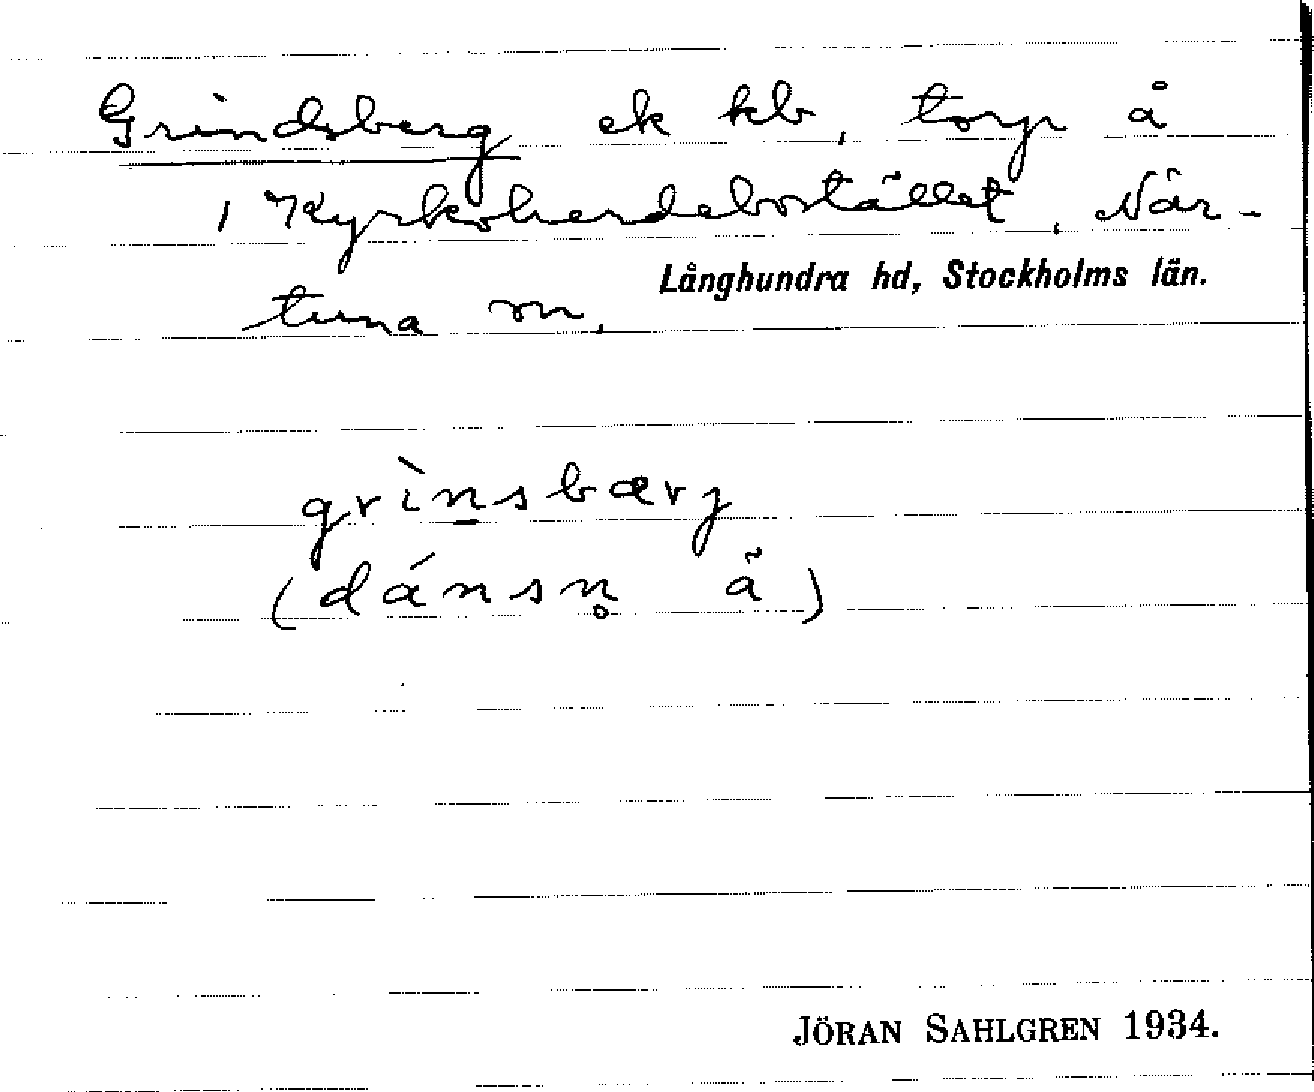 Grindsberg ek kb, torp å
1 Kyrkoherdebostället, När-
Långhundra hd, Stockholms län.
tuna sn,
grìnsbærj
(dánsn̥ ä̃)
JÖRAN SAHLGREN 1934.